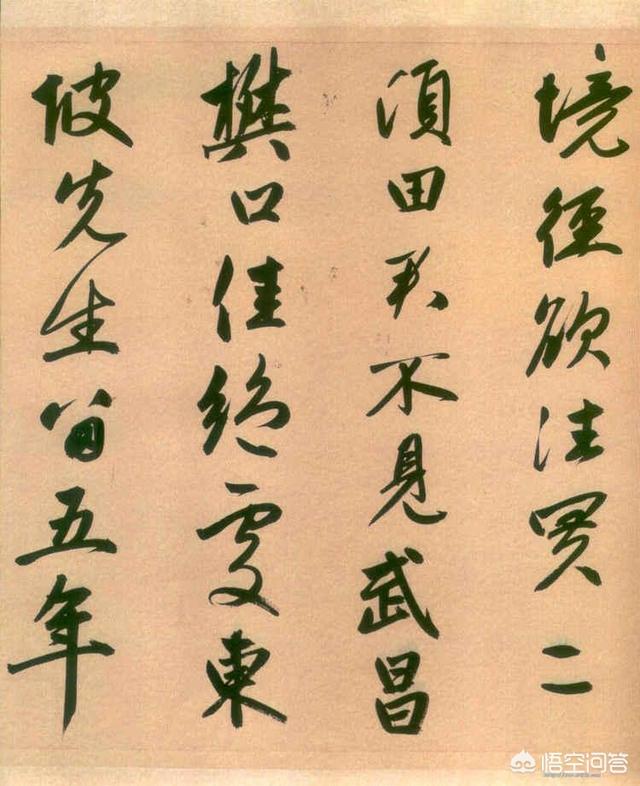 境徑欲往買二
頃田君不見武昌
樊口佳絕處東
坡先生留五年
悟空问答